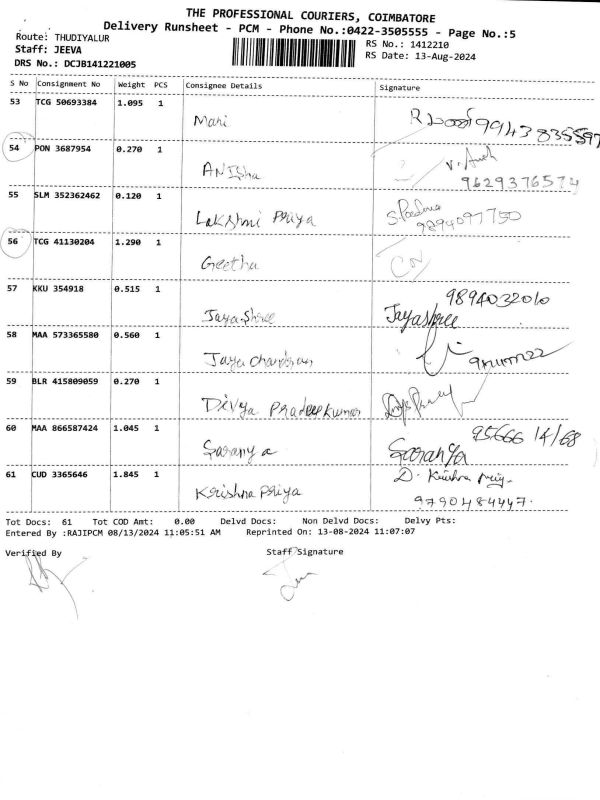 THE PROFESSIONAL COURIERS, COIMBATORE
Delivery Runsheet - PCM - Phone No.:0422-3505555 - Page No.:5
Route: THUDIYALUR
RS No.: 1412210
Staff: JEEVA
RS Date: 13-Aug-2024
DRS No.: DCJB141221005
S No Consignment No Weight PCS Consignee Details Signature
53 TCG 50693384 1.095 1
Mani 9943835597
54 PON 3687954 0.270 1
ANISha
9629376574
55 SLM 352362462 0.120 1
LakShmi Priya 9894097750
56 TCG 41130204 1.290 1
Geetha
57 KKU 354918 0.515 1 9894032010
JayaShree Jayashree
58 MAA 573365580 0.560 1
Jaya Chandran
59 BLR 415809059 0.270 1
Divya Pradeepkumar
60 MAA 866587424 1.045 1 95666 14168
Saranya Saranya
61 CUD 3365646 1.845 1 D. Krishna
Krishna Priya 9790484447.
Tot Docs: 61 Tot COD Amt: 0.00 Delvd Docs: Non Delvd Docs: Delvy Pts:
Entered By :RAJIPCM 08/13/2024 11:05:51 AM Reprinted On: 13-08-2024 11:07:07
Verified By Staff Signature